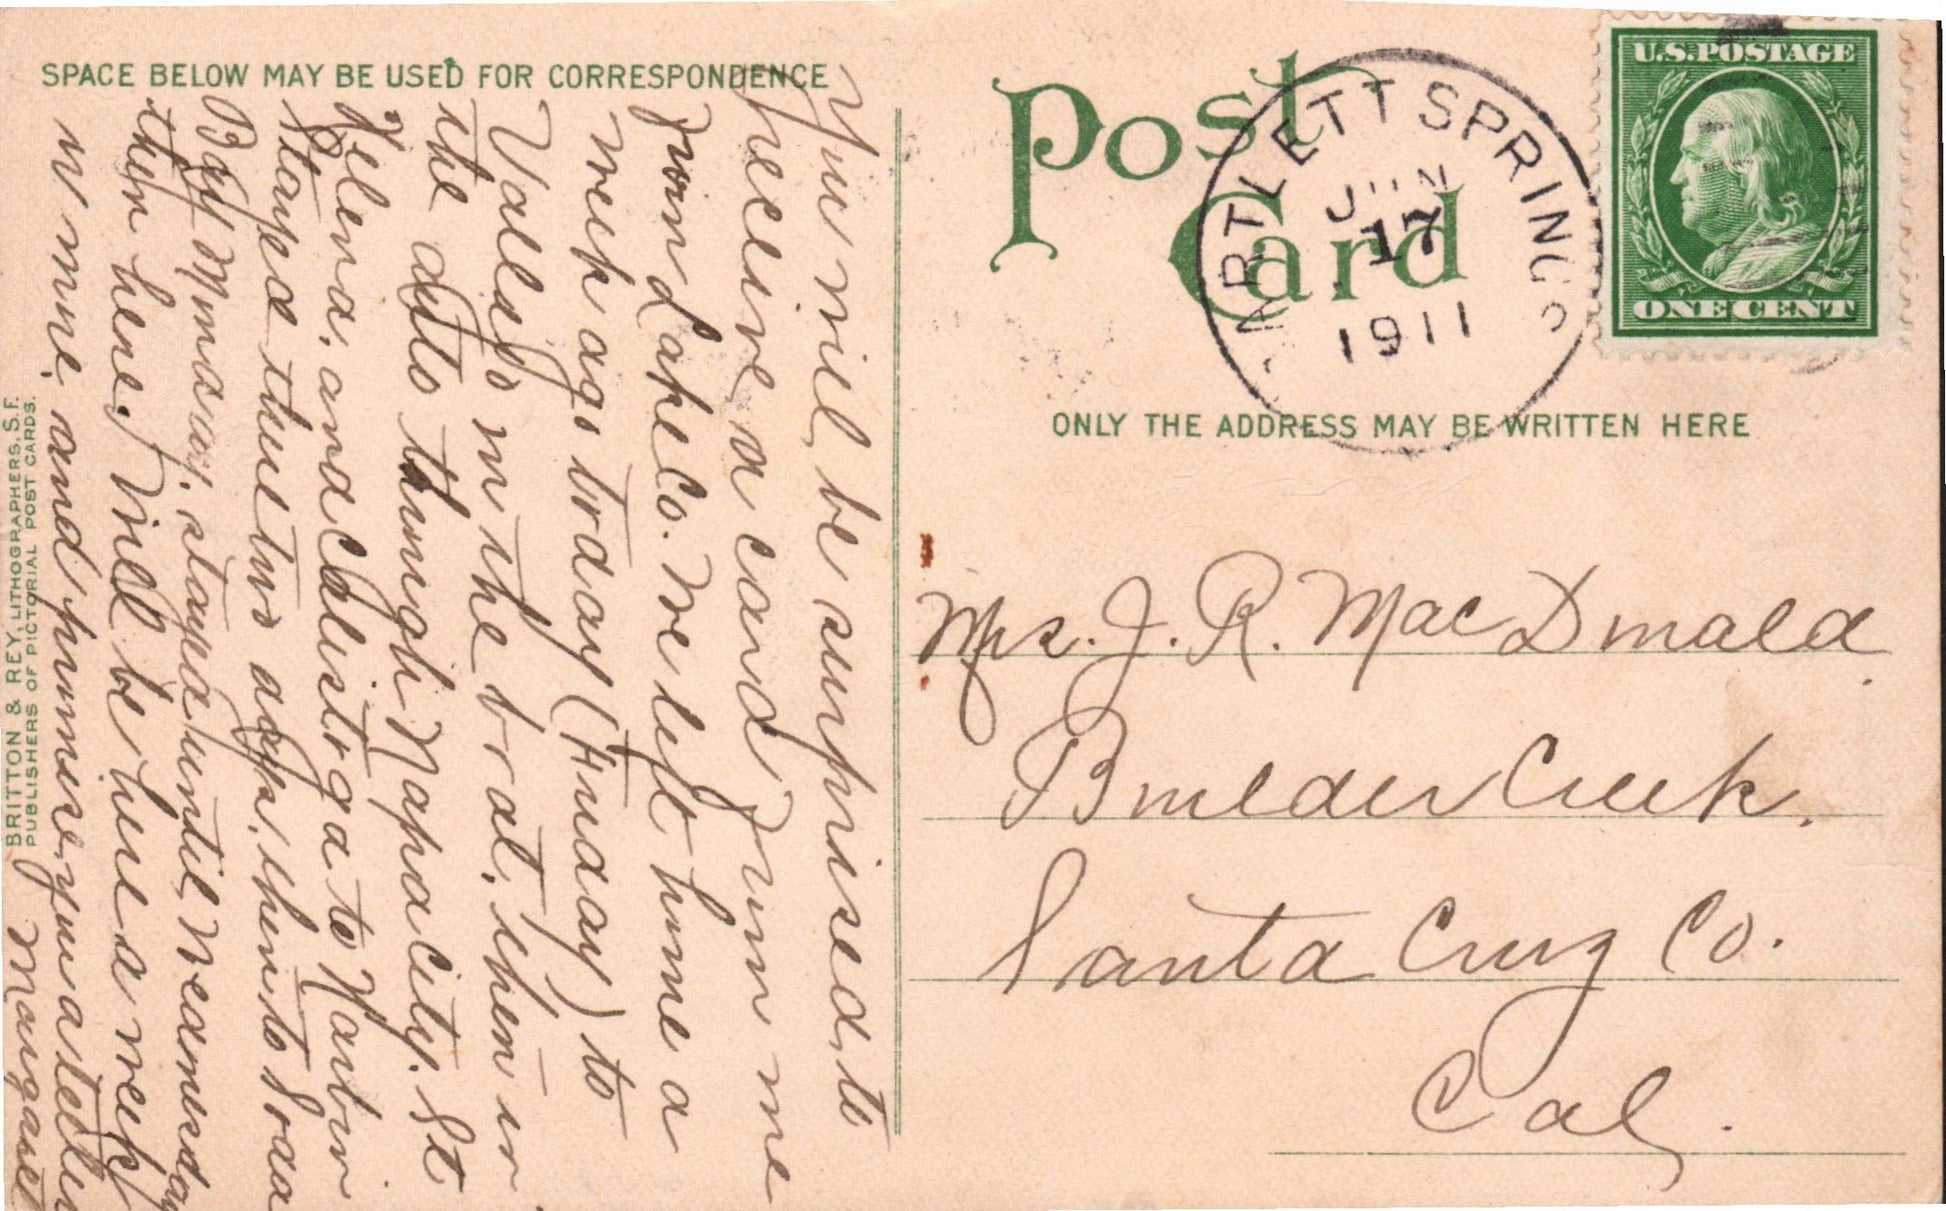 SPACE BELOW MAY BE USED FOR CORRESPONDENCE
You will be surprised, to
receive a card from me
from Lake Co. We left home a
week ago today (Friday) to
Vallejo in the boat, then in
the auto through Napa City, St
Helena, and Calistoga to Harbin
Stayed there two days, then to Soda
Bay Monday, stayed until Wednesday
then here, Will be here a week
or more, and promise you a letter
Margaret
BRITTON & REY, LITHOGRAPHERS, S.F.
PUBLISHERS OF PICTORIAL POST CARDS.
Post
Card
ARTLETT SPRINGS
JUN
17
1911
U.S. POSTAGE
ONE CENT
ONLY THE ADDRESS MAY BE WRITTEN HERE
Mrs. J. R. MacDonald
Boulder Creek.
Santa Cruz Co.
Cal.